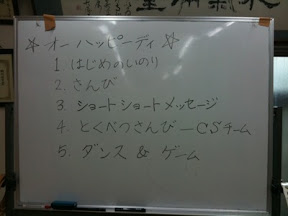 ☆ オーハッピーデイ ☆
1. はじめのいのり
2. さんび
3. ショートショートメッセージ
4. とくべつさんび ー CSチーム
5. ダンス & ゲーム